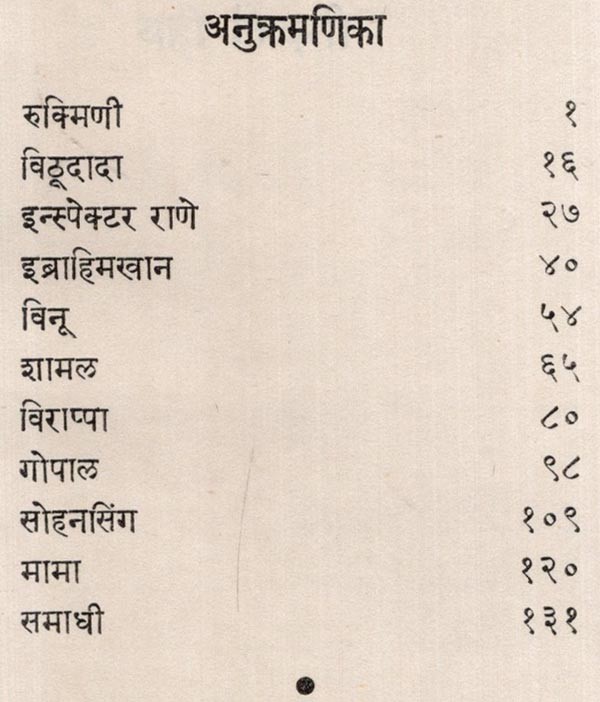 अनुक्रमणिका
रुक्मिणी १
विठूदादा १६
इन्स्पेक्टर राणे २७
इब्राहिमखान ४०
विनू ५४
शामल ६५
विराप्पा ८०
गोपाल ९८
सोहनसिंग १०९
मामा १२०
समाधी १३१